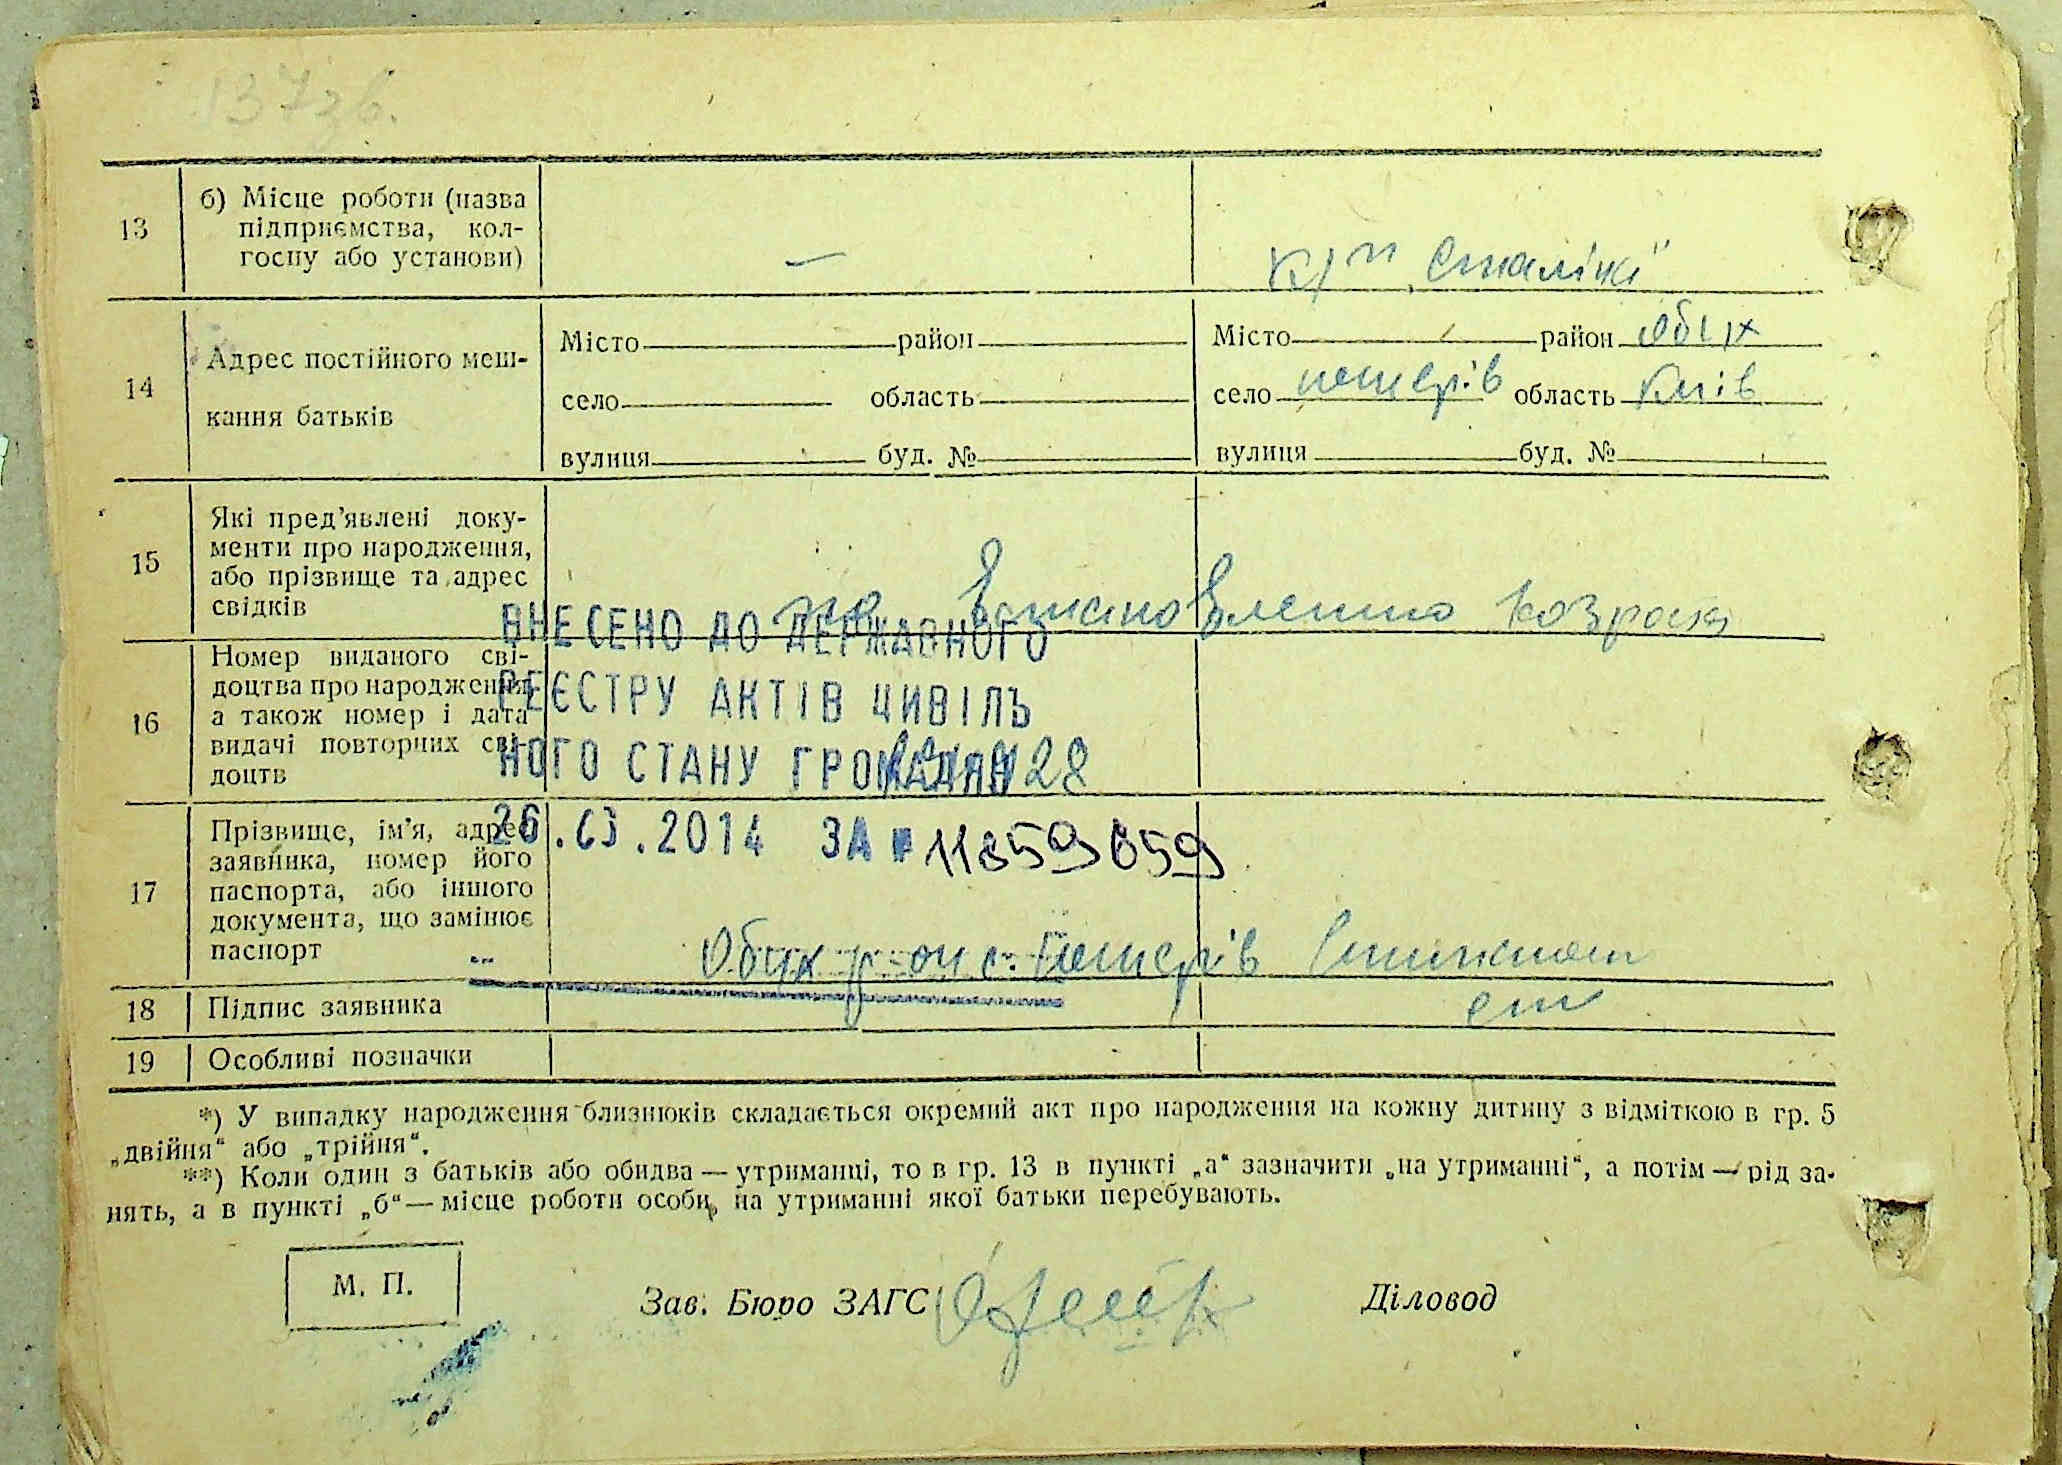 137зв.
13
б) Місце роботи (назва
підприємства, кол-
госпу або установи)
—
к/г „Сталіні"
14
Адрес постійного меш-
кання батьків
Місто район
село область
вулиця буд. №
Місто район Обух
село область Київ
вулиця буд. №
15
Які пред'явлені доку-
менти про народження,
або прізвище та адрес
свідків
по
ВНЕСЕНО ДО ДЕРЖАВНОГО
РЕЄСТРУ АКТІВ ЦИВІЛЬ
НОГО СТАНУ ГРОМАДЯН
16
Номер виданого сві-
доцтва про народження
а також номер і дата
видачі повторних сві-
доцтв
26.03.2014 ЗА №
17
Прізвище, ім'я, адрес
заявника, номер його
паспорта, або іншого
документа, що замінює
паспорт
Обух с.
18
Підпис заявника
19
Особливі позначки
*) У випадку народження близнюків складається окремий акт про народження на кожну дитину з відміткою в гр. 5
„двійня" або „трійня".
**) Коли один з батьків або обидва — утриманці, то в гр. 13 в пункті „а" зазначити „на утриманні", а потім — рід за-
нять, а в пункті „б" — місце роботи особи, на утриманні якої батьки перебувають.
М. П.
Зав. Бюро ЗАГС
Діловод